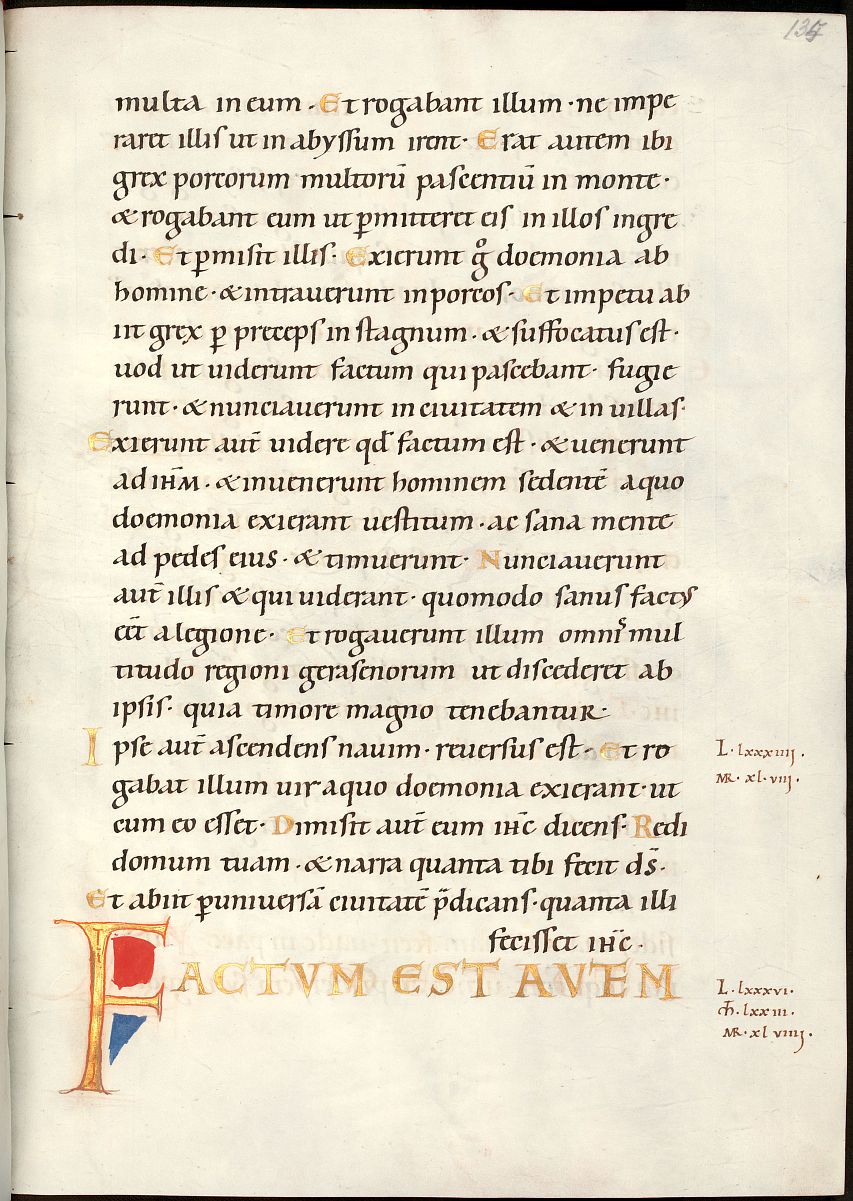 135
multa in eum . Et rogabant illum · ne impe
raret illis ut in abyssum irent · Erat autem ibi
grex porcorum multorū pascentiū in monte ·
& rogabant eum ut p̄mitteret eis in illos ingre
di · Et p̄misit illis · Exierunt g̊ doemonia ab
homine · & intraverunt in porcos · Et impetu ab
iit grex p̱ preceps in stagnum · & suffocatus est ·
uod ut uiderunt factum qui pascebant · fugie
runt · & nunciauerunt in ciuitatem & in uillas ·
Exierunt aut̄ uidere qd̄ factum est · & uenerunt
ad ih̄m · & inuenerunt hominem sedentē a quo
doemonia exierant uestitum · ac sana mente
ad pedes eius · & timuerunt · Nunciauerunt
aut̄ illis & qui uiderant · quomodo sanus factus
eēt a legione · Et rogauerunt illum omnis mul
titudo regioni gerasenorum ut discederet ab
ipsis · quia timore magno tenebantur ·
Ipse aut̄ ascendens nauim · reuersus est · Et ro
L · lxxxiiij .
gabat illum uir a quo doemonia exierant · ut
MR · xl · viij .
cum eo esset · Dimisit aut̄ eum ih̄c dicens · Redi
domum tuam · & narra quanta tibi fecit dS̄ ·
Et abiit p̱ uniuersā ciuitatē p̄dicans · quanta illi
fecisset ih̄c ·
FACTVM EST AVTEM
L · lxxxvi .
M̄ · lxxiii .
MR · xl viiij .